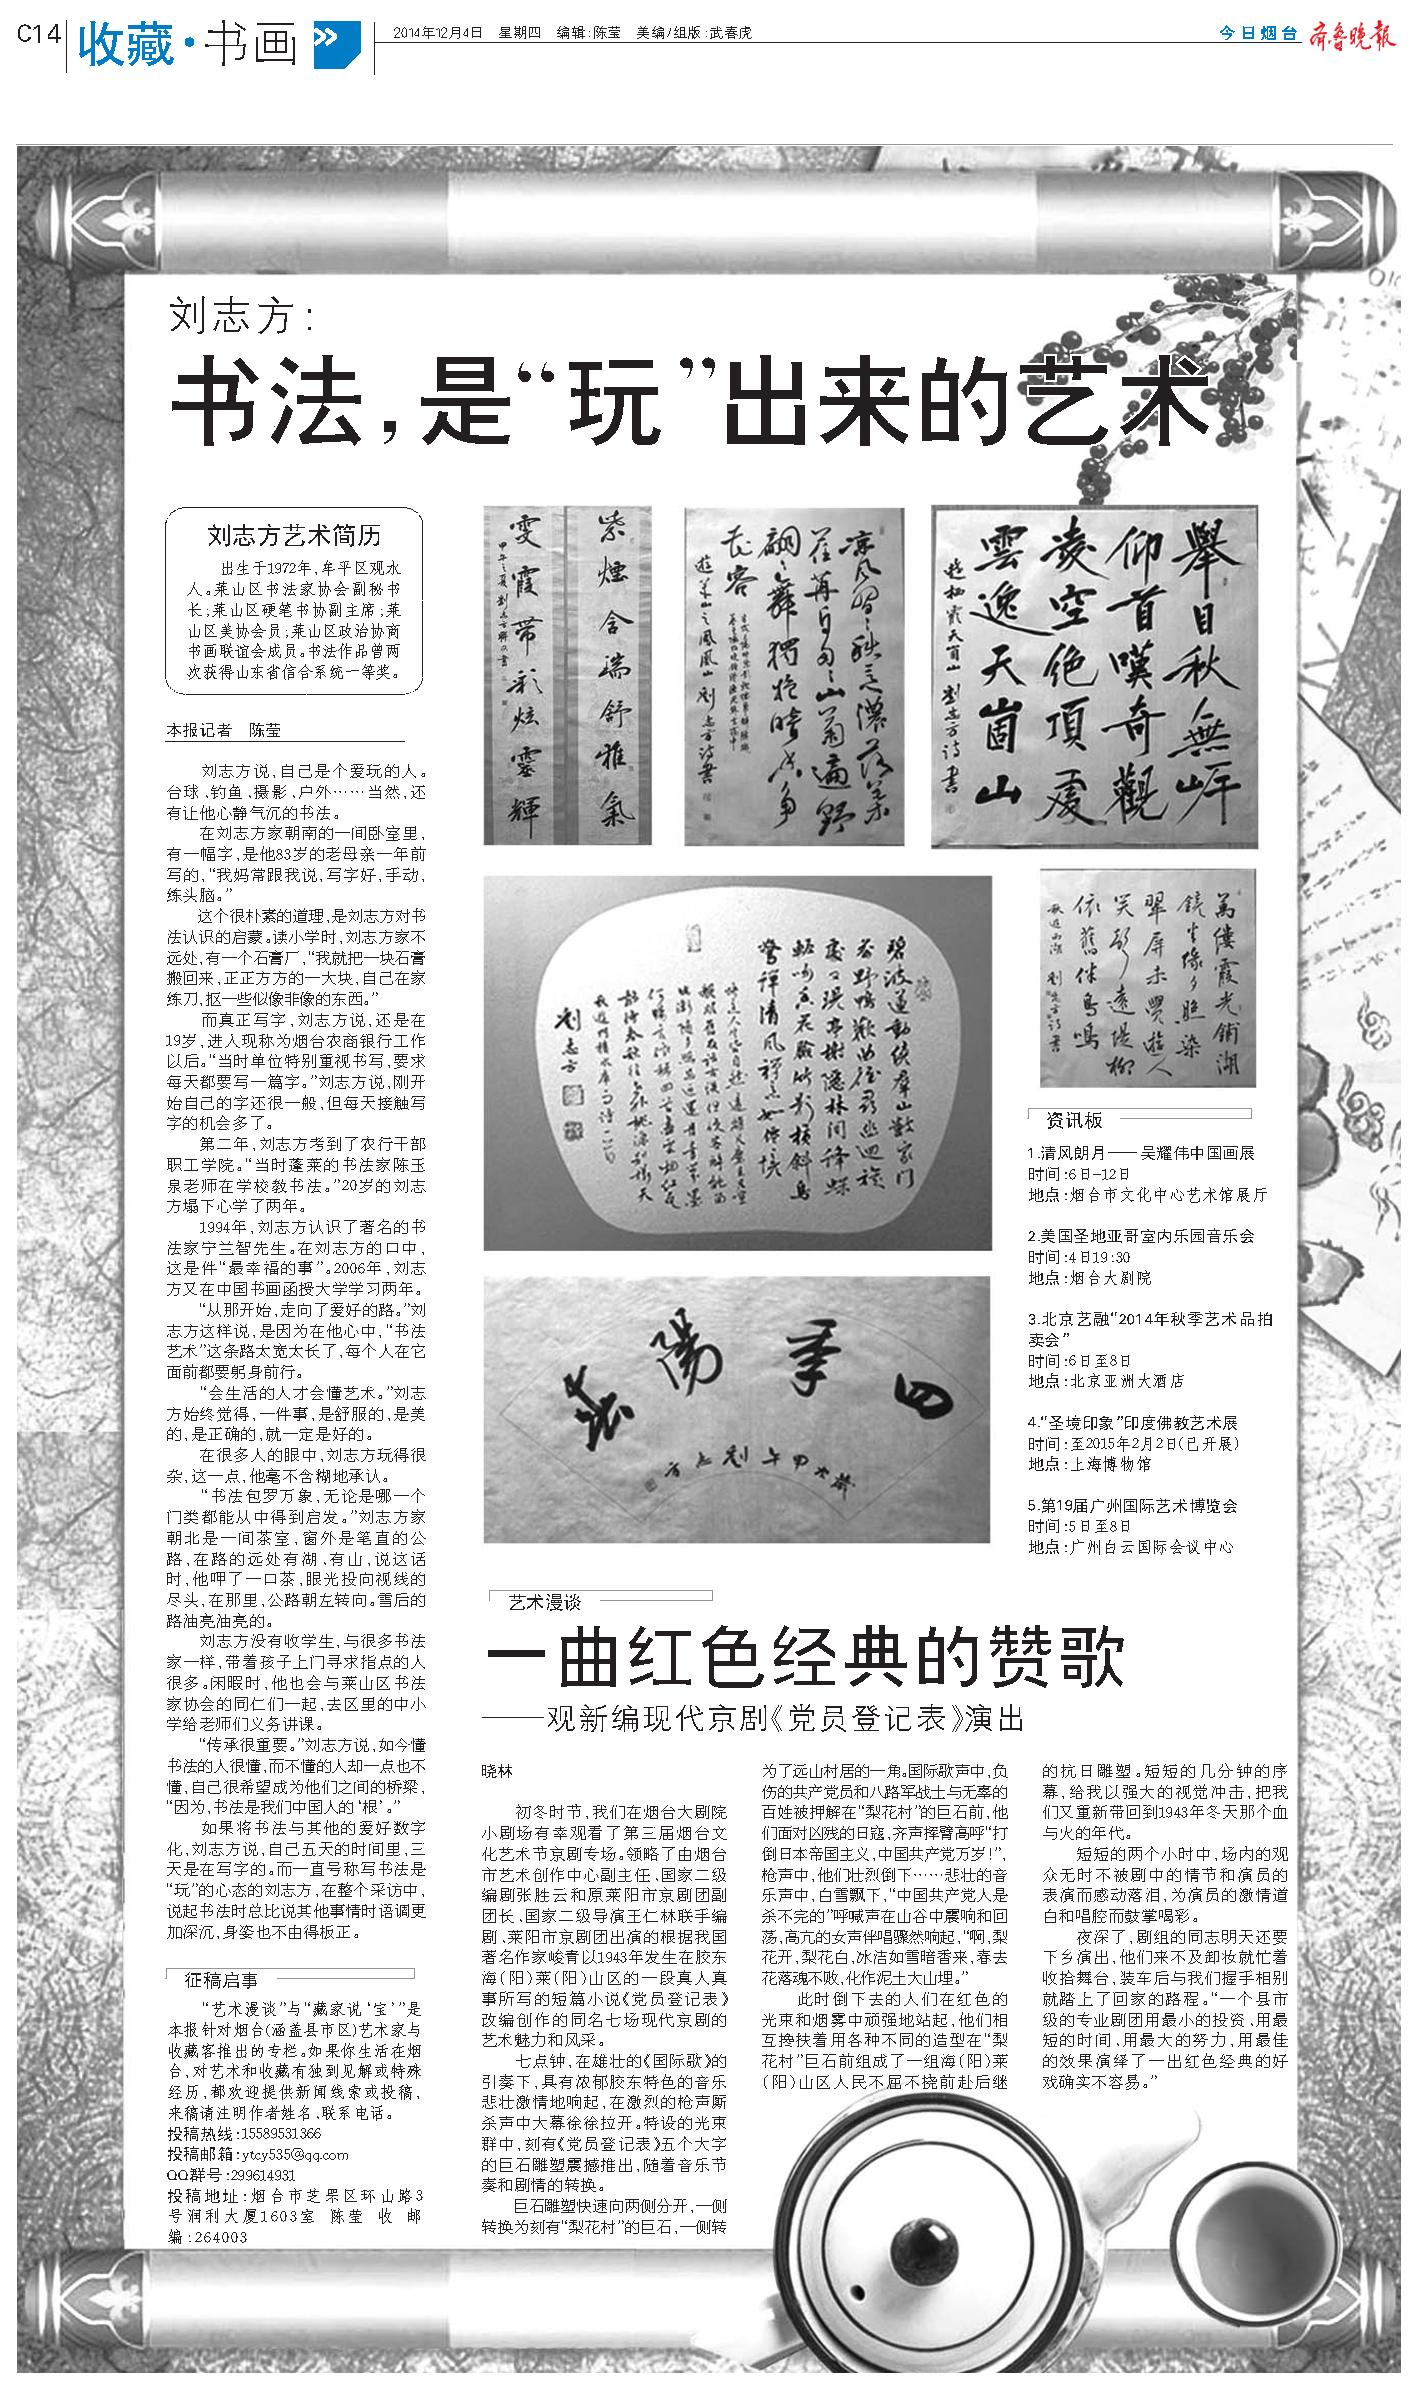 C14 收藏·书画
2014年12月4日 星期四 编辑:陈莹 美编/组版:武春虎
今日烟台 齐鲁晚报
刘志方:
书法,是“玩”出来的艺术
刘志方艺术简历
出生于1972年,牟平区观水
人。莱山区书法家协会副秘书
长;莱山区硬笔书协副主席;莱
山区美协会员;莱山区政治协商
书画联谊会成员。书法作品曾两
次获得山东省信合系统一等奖。
本报记者 陈莹
刘志方说,自己是个爱玩的人。
台球、钓鱼、摄影、户外……当然,还
有让他心静气沉的书法。
在刘志方家朝南的一间卧室里,
有一幅字,是他83岁的老母亲一年前
写的,“我妈常跟我说,写字好,手动,
练头脑。”
这个很朴素的道理,是刘志方对书
法认识的启蒙。读小学时,刘志方家不
远处,有一个石膏厂,“我就把一块石膏
搬回来,正正方方的一大块,自己在家
练刀,抠一些似像非像的东西。”
而真正写字,刘志方说,还是在
19岁,进入现称为烟台农商银行工作
以后。“当时单位特别重视书写,要求
每天都要写一篇字。”刘志方说,刚开
始自己的字还很一般,但每天接触写
字的机会多了。
第二年,刘志方考到了农行干部
职工学院。“当时蓬莱的书法家陈玉
泉老师在学校教书法。”20岁的刘志
方塌下心学了两年。
1994年,刘志方认识了著名的书
法家宁兰智先生。在刘志方的口中,
这是件“最幸福的事”。2006年,刘志
方又在中国书画函授大学学习两年。
“从那开始,走向了爱好的路。”刘
志方这样说,是因为在他心中,“书法
艺术”这条路太宽太长了,每个人在它
面前都要躬身前行。
“会生活的人才会懂艺术。”刘志
方始终觉得,一件事,是舒服的,是美
的,是正确的,就一定是好的。
在很多人的眼中,刘志方玩得很
杂,这一点,他毫不含糊地承认。
“书法包罗万象,无论是哪一个
门类都能从中得到启发。”刘志方家
朝北是一间茶室,窗外是笔直的公
路,在路的远处有湖、有山,说这话
时,他呷了一口茶,眼光投向视线的
尽头,在那里,公路朝左转向。雪后的
路油亮油亮的。
刘志方没有收学生,与很多书法
家一样,带着孩子上门寻求指点的人
很多。闲暇时,他也会与莱山区书法
家协会的同仁们一起,去区里的中小
学给老师们义务讲课。
“传承很重要。”刘志方说,如今懂
书法的人很懂,而不懂的人却一点也不
懂,自己很希望成为他们之间的桥梁,
“因为,书法是我们中国人的‘根’。”
如果将书法与其他的爱好数字
化,刘志方说,自己五天的时间里,三
天是在写字的。而一直号称写书法是
“玩”的心态的刘志方,在整个采访中,
说起书法时总比说其他事情时语调更
加深沉,身姿也不由得板正。
征稿启事
“艺术漫谈”与“藏家说‘宝’”是
本报针对烟台(涵盖县市区)艺术家与
收藏客推出的专栏。如果你生活在烟
台,对艺术和收藏有独到见解或特殊
经历,都欢迎提供新闻线索或投稿,
来稿请注明作者姓名、联系电话。
投稿热线:15589531366
投稿邮箱:ytcy535@qq.com
QQ群号:299614931
投稿地址:烟台市芝罘区环山路3
号润利大厦1603室 陈莹 收 邮
编:264003
紫煙含瑞舒雅氣
雯霞帶彩炫靈輝
舉目秋無岸
仰首嘆奇觀
凌空絶頂處
雲逸天崮山
萬縷霞光鋪湖
鏡半緣夕照染
翠屏未覺遊人
笑聲遠堤柳
依舊伴鳥鳴
劉志方
四季陽光
资讯板
1.清风朗月——吴耀伟中国画展
时间:6日-12日
地点:烟台市文化中心艺术馆展厅
2.美国圣地亚哥室内乐团音乐会
时间:4日19:30
地点:烟台大剧院
3.北京艺融“2014年秋季艺术品拍
卖会”
时间:6日至8日
地点:北京亚洲大酒店
4.“圣境印象”印度佛教艺术展
时间:至2015年2月2日(已开展)
地点:上海博物馆
5.第19届广州国际艺术博览会
时间:5日至8日
地点:广州白云国际会议中心
艺术漫谈
一曲红色经典的赞歌
——观新编现代京剧《党员登记表》演出
晓林
初冬时节,我们在烟台大剧院
小剧场有幸观看了第三届烟台文
化艺术节京剧专场。领略了由烟台
市艺术创作中心副主任、国家二级
编剧张胜云和原莱阳市京剧团副
团长、国家二级导演王仁林联手编
剧,莱阳市京剧团出演的根据我国
著名作家峻青以1943年发生在胶东
海(阳)莱(阳)山区的一段真人真
事所写的短篇小说《党员登记表》
改编创作的同名七场现代京剧的
艺术魅力和风采。
七点钟,在雄壮的《国际歌》的
引奏下,具有浓郁胶东特色的音乐
悲壮激情地响起,在激烈的枪声厮
杀声中大幕徐徐拉开。特设的光束
群中,刻有《党员登记表》五个大字
的巨石雕塑震撼推出,随着音乐节
奏和剧情的转换。
巨石雕塑快速向两侧分开,一侧
转换为刻有“梨花村”的巨石,一侧转
为了远山村居的一角。国际歌声中,负
伤的共产党员和八路军战士与无辜的
百姓被押解在“梨花村”的巨石前,他
们面对凶残的日寇,齐声挥臂高呼“打
倒日本帝国主义,中国共产党万岁!”,
枪声中,他们壮烈倒下……悲壮的音
乐声中,白雪飘下,“中国共产党人是
杀不完的”呼喊声在山谷中震响和回
荡,高亢的女声伴唱骤然响起,“啊,梨
花开,梨花白,冰洁如雪暗香来,春去
花落魂不败,化作泥土大山埋。”
此时倒下去的人们在红色的
光束和烟雾中顽强地站起,他们相
互搀扶着用各种不同的造型在“梨
花村”巨石前组成了一组海(阳)莱
(阳)山区人民不屈不挠前赴后继
的抗日雕塑。短短的几分钟的序
幕,给我以强大的视觉冲击,把我
们又重新带回到1943年冬天那个血
与火的年代。
短短的两个小时中,场内的观
众无时不被剧中的情节和演员的
表演而感动落泪,为演员的激情道
白和唱腔而鼓掌喝彩。
夜深了,剧组的同志明天还要
下乡演出,他们来不及卸妆就忙着
收拾舞台,装车后与我们握手相别
就踏上了回家的路程。“一个县市
级的专业剧团用最小的投资、用最
短的时间、用最大的努力,用最佳
的效果演绎了一出红色经典的好
戏确实不容易。”